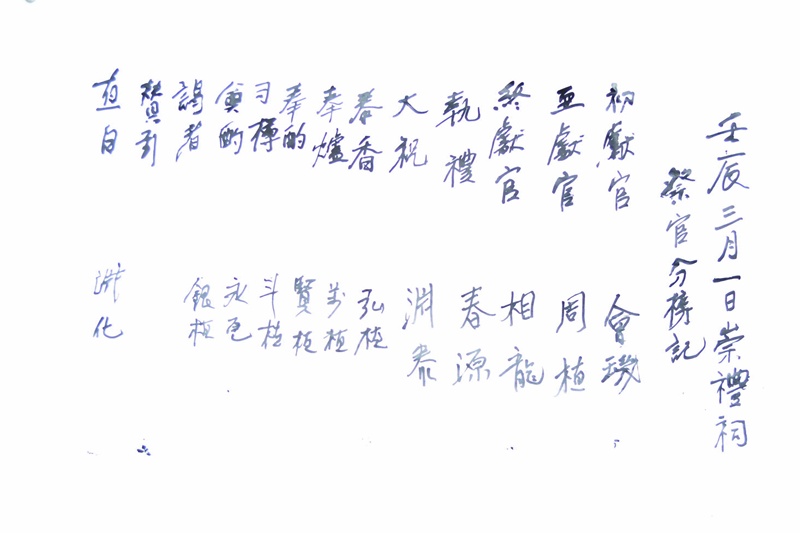 壬辰三月一日崇禮祠
祭官分榜記
初獻官 會璣
亞獻官 周植
終獻官 相龍
執禮 春源
大祝 淵泰
奉香 弘植
奉爐 萬植
奉酌 賢植
司樽 斗植
奠酌 永
謁者 銀植
贊引
直日 化